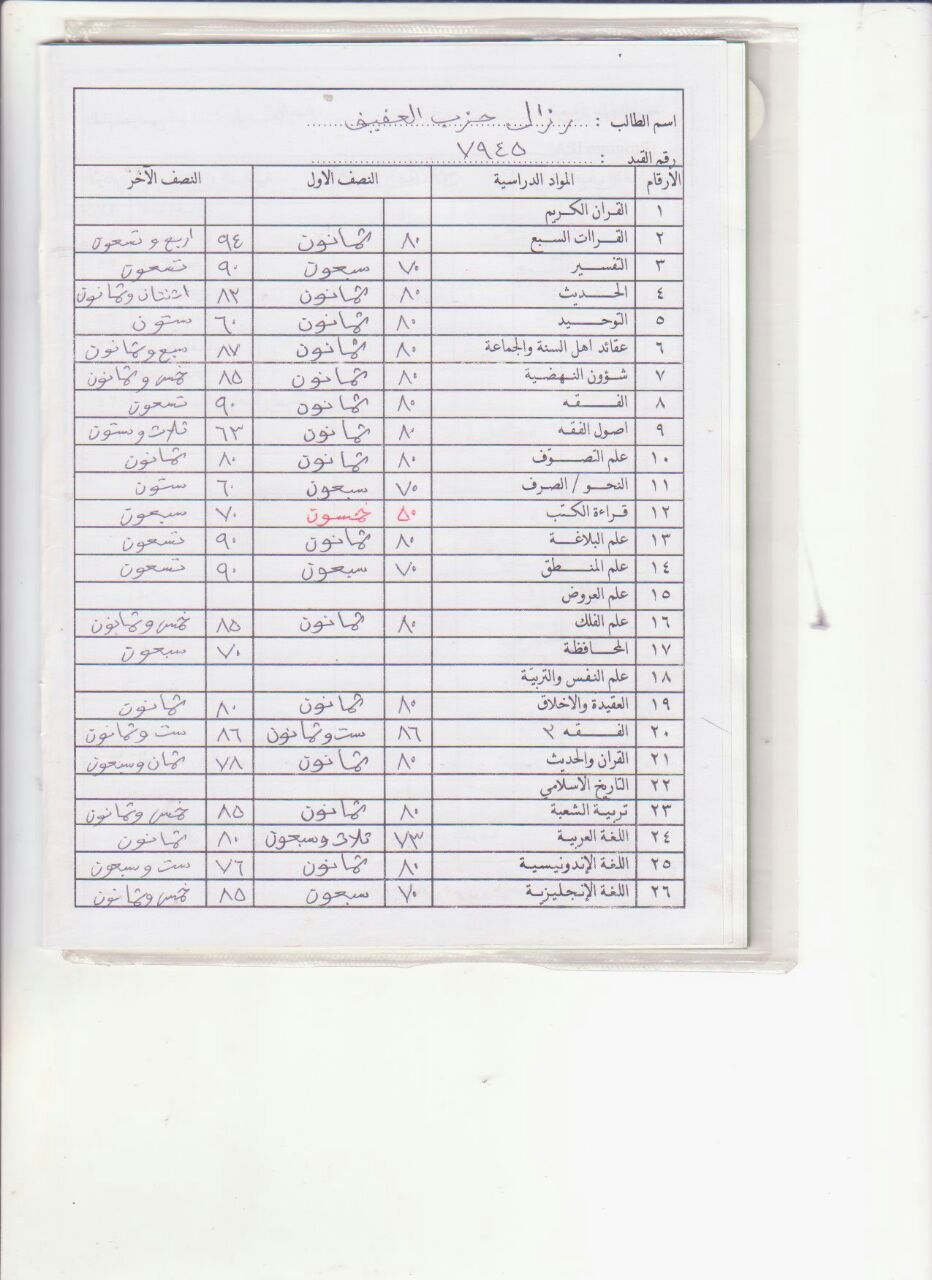 اسم الطالب : رنزالى حزب العفيفى
رقم القيد : ٧٩٤٥
الأرقام المواد الدراسية النصف الاول النصف الآخر
١ القرآن الكريم
٢ القراآت السبع ٨٠ ثمانون ٩٤ اربع وتسعون
٣ التفسير ٧٠ سبعون ٩٠ تسعون
٤ الحديث ٨٠ ثمانون ٨٢ اثنتان وثمانون
٥ التوحيد ٨٠ ثمانون ٦٠ ستون
٦ عقائد اهل السنة والجماعة ٨٠ ثمانون ٨٧ سبع وثمانون
٧ شؤون النهضية ٨٠ ثمانون ٨٥ خمس وثمانون
٨ الفقه ٨٠ ثمانون ٩٠ تسعون
٩ اصول الفقه ٨٠ ثمانون ٦٣ ثلاث وستون
١٠ علم التصوّف ٨٠ ثمانون ٨٠ ثمانون
١١ النحو / الصرف ٧٠ سبعون ٦٠ ستون
١٢ قراءة الكتب ٥٠ خمسون ٧٠ سبعون
١٣ علم البلاغة ٨٠ ثمانون ٩٠ تسعون
١٤ علم المنطق ٧٠ سبعون ٩٠ تسعون
١٥ علم العروض
١٦ علم الفلك ٨٠ ثمانون ٨٥ خمس وثمانون
١٧ المحافظة ٧٠ سبعون
١٨ علم النفس والتربية
١٩ العقيدة والاخلاق ٨٠ ثمانون ٨٠ ثمانون
٢٠ الفقه ٣ ٨٦ ست وثمانون ٨٦ ست وثمانون
٢١ القرآن والحديث ٨٠ ثمانون ٧٨ ثمان وسبعون
٢٢ التاريخ الاسلامي
٢٣ تربية الشعبة ٨٠ ثمانون ٨٥ خمس وثمانون
٢٤ اللغة العربية ٧٣ ثلاث وسبعون ٨٠ ثمانون
٢٥ اللغة الإندونيسية ٨٠ ثمانون ٧٦ ست وسبعون
٢٦ اللغة الإنجليزية ٧٠ سبعون ٨٥ خمس وثمانون